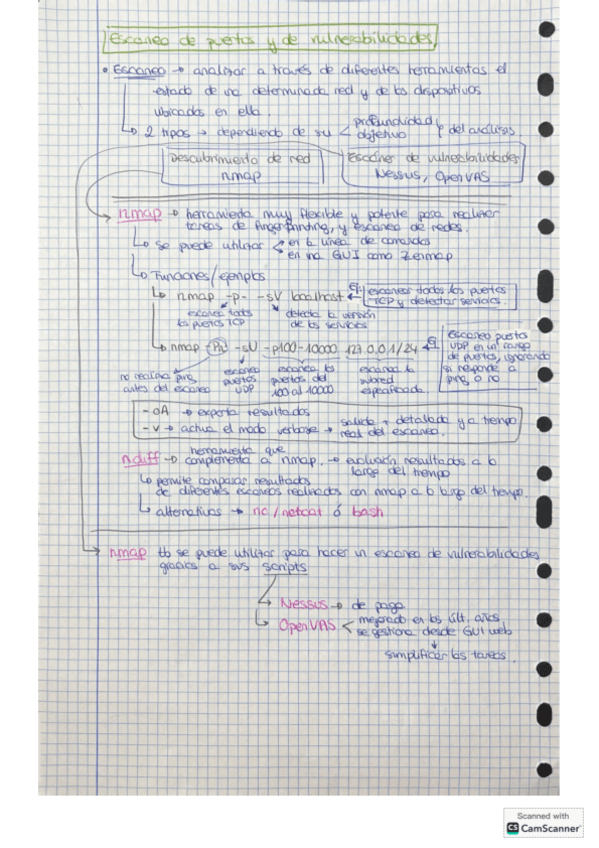 Escaneo de puertos y de vulnerabilidades
• Escaneo → analizar a través de diferentes herramientas el
estado de una determinada red y de los dispositivos
ubicados en ella.
↳ 2 tipos → dependiendo de su < profundidad
objetivo } del análisis.
Descubrimiento de red
nmap
Escáner de vulnerabilidades
Nessus, OpenVAS
nmap → herramienta muy flexible y potente para realizar
tareas de fingerprinting, y escaneo de redes.
↳ Se puede utilizar < en la línea de comandos
en una GUI como Zenmap
↳ Funciones/ejemplos
↳ nmap -p- -sV localhost
escanea todos
los puertos TCP
detecta la versión
de los servicios
Ej: escanear todos los puertos
TCP y detectar servicios.
↳ nmap -Pn -sU -p100-10000 127.0.0.1/24
no realiza ping
antes del escaneo
escaneo
puertos
UDP
escanea los
puertos del
100 al 10000
escanea la
subred
especificada
Ej
Escaneo puertos
UDP en un rango
de puertos, ignorando
si responde a
ping o no
-oA → exporta resultados
-v → activa el modo verbose → salida + detallada y a tiempo
real del escaneo.
ndiff → herramienta que
complementa a nmap. → evaluación resultados a lo
largo del tiempo
↳ permite comparar resultados
de diferentes escaneos realizados con nmap a lo largo del tiempo.
↳ alternativas → nc/netcat ó bash
nmap tb se puede utilizar para hacer un escaneo de vulnerabilidades
gracias a sus scripts
↳ Nessus → de pago
↳ OpenVAS < mejorado en los últ. años
se gestiona desde GUI web
↓
simplificar las tareas.
Scanned with
CS CamScanner